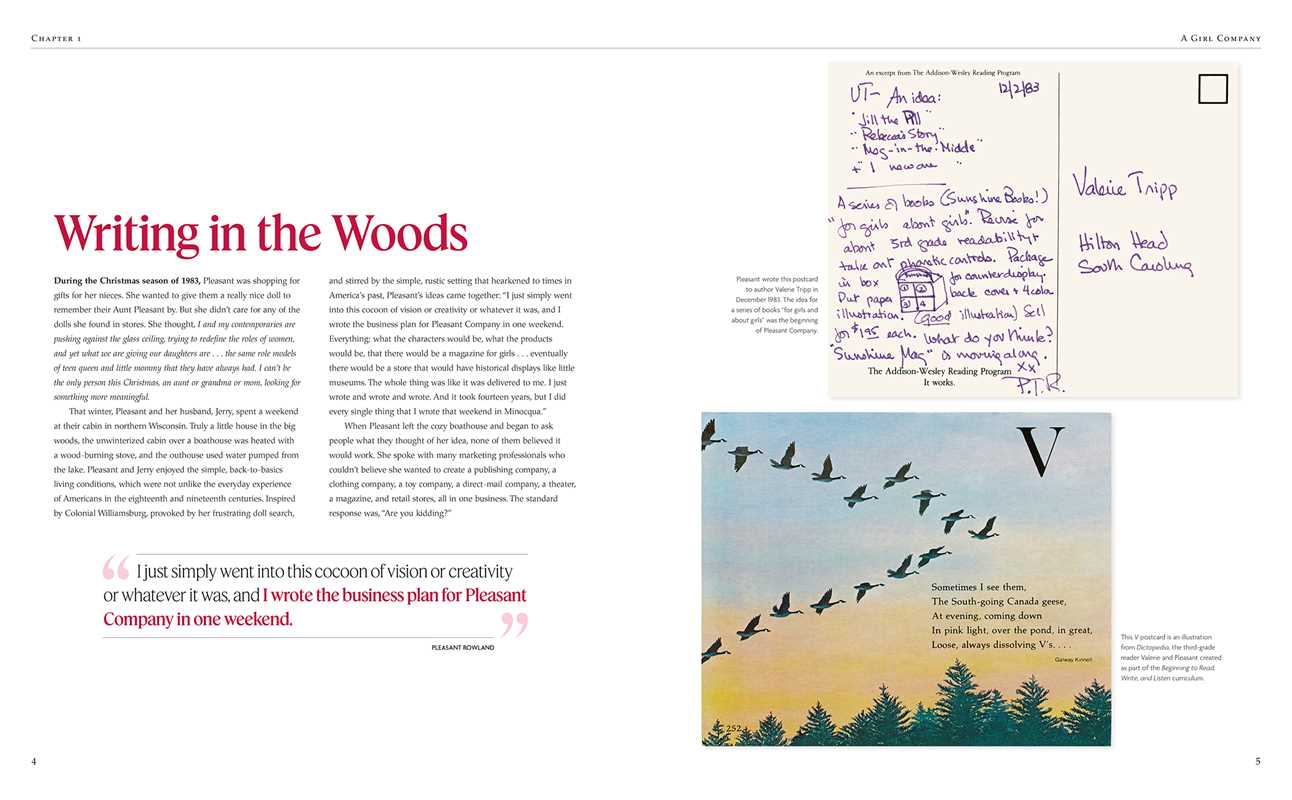 Chapter 1
A Girl Company
Writing in the Woods
During the Christmas season of 1983, Pleasant was shopping for
gifts for her nieces. She wanted to give them a really nice doll to
remember their Aunt Pleasant by. But she didn't care for any of the
dolls she found in stores. She thought, I and my contemporaries are
pushing against the glass ceiling, trying to redefine the roles of women,
and yet what we are giving our daughters are . . . the same role models
of teen queen and little mommy that they have always had. I can't be
the only person this Christmas, an aunt or grandma or mom, looking for
something more meaningful.
That winter, Pleasant and her husband, Jerry, spent a weekend
at their cabin in northern Wisconsin. Truly a little house in the big
woods, the unwinterized cabin over a boathouse was heated with
a wood-burning stove, and the outhouse used water pumped from
the lake. Pleasant and Jerry enjoyed the simple, back-to-basics
living conditions, which were not unlike the everyday experience
of Americans in the eighteenth and nineteenth centuries. Inspired
by Colonial Williamsburg, provoked by her frustrating doll search,
and stirred by the simple, rustic setting that hearkened to times in
America's past, Pleasant's ideas came together: "I just simply went
into this cocoon of vision or creativity or whatever it was, and I
wrote the business plan for Pleasant Company in one weekend.
Everything: what the characters would be, what the products
would be, that there would be a magazine for girls . . . eventually
there would be a store that would have historical displays like little
museums. The whole thing was like it was delivered to me. I just
wrote and wrote and wrote. And it took fourteen years, but I did
every single thing that I wrote that weekend in Minocqua."
When Pleasant left the cozy boathouse and began to ask
people what they thought of her idea, none of them believed it
would work. She spoke with many marketing professionals who
couldn't believe she wanted to create a publishing company, a
clothing company, a toy company, a direct-mail company, a theater,
a magazine, and retail stores, all in one business. The standard
response was, "Are you kidding?"
“ I just simply went into this cocoon of vision or creativity
or whatever it was, and I wrote the business plan for Pleasant
Company in one weekend. ”
PLEASANT ROWLAND
4
Pleasant wrote this postcard
to author Valerie Tripp in
December 1983. The idea for
a series of books "for girls and
about girls" was the beginning
of Pleasant Company.
An excerpt from The Addison-Wesley Reading Program
12/2/83
VT- An idea:
"Jill the Pill"
"Rebecca's Story"
"Meg-in-the-Middle"
+ 1 new one
A series of books (Sunshine Books!)
"for girls about girls". Revise for
about 3rd grade readability +
take out phonetic controls. Package
in box for counter display.
1 2
3 4
Put paper back cover + 4 color
illustration. (Good illustration) Sell
for $1.95 each. What do you think?
"Sunshine Mag" is moving along.
XX
P.T.R.
The Addison-Wesley Reading Program
It works.
Valerie Tripp
Hilton Head
South Carolina
V
Sometimes I see them,
The South-going Canada geese,
At evening, coming down
In pink light, over the pond, in great,
Loose, always dissolving V's. . . .
Galway Kinnell
252
This V postcard is an illustration
from Dictopedia, the third-grade
reader Valerie and Pleasant created
as part of the Beginning to Read,
Write, and Listen curriculum.
5